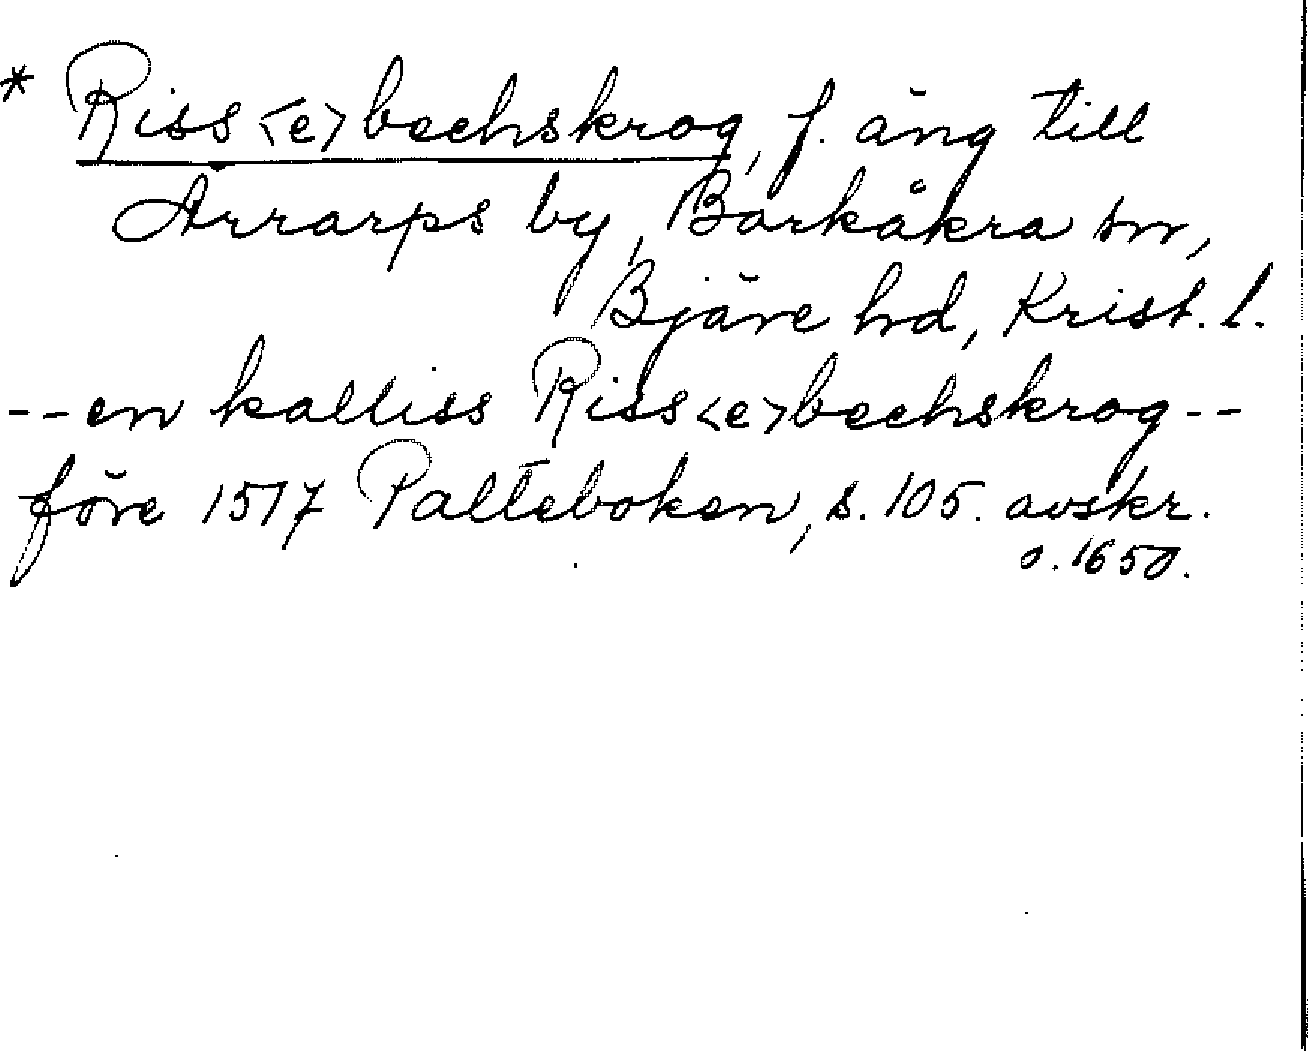 * Riss<e>bechskrog, f. äng till
Ärrarps by, Barkåkra sn,
Bjäre hd, Krist. l.
--en kalliss Riss<e>bechskrog--
före 1517 Palteboken, s. 105. avskr.
o. 1650.